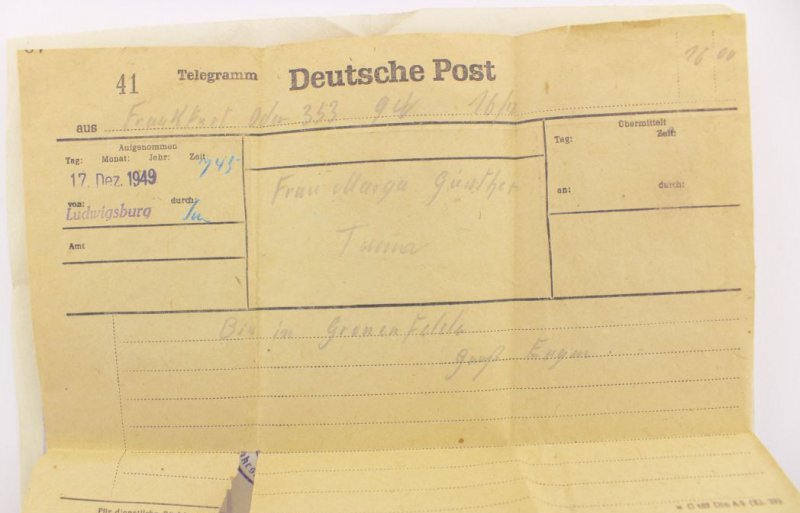 41 Telegramm Deutsche Post
16 00
aus Frankfurt Oder 353 9 16/12
Aufgenommen
Tag: Monat: Jahr: Zeit
17. Dez. 1949 745
von: durch:
Ludwigsburg
Amt
Frau Marga Günther
Übermittelt
Tag: Zeit:
an: durch:
Bin im Gronenfelde
Gruß Eugen.